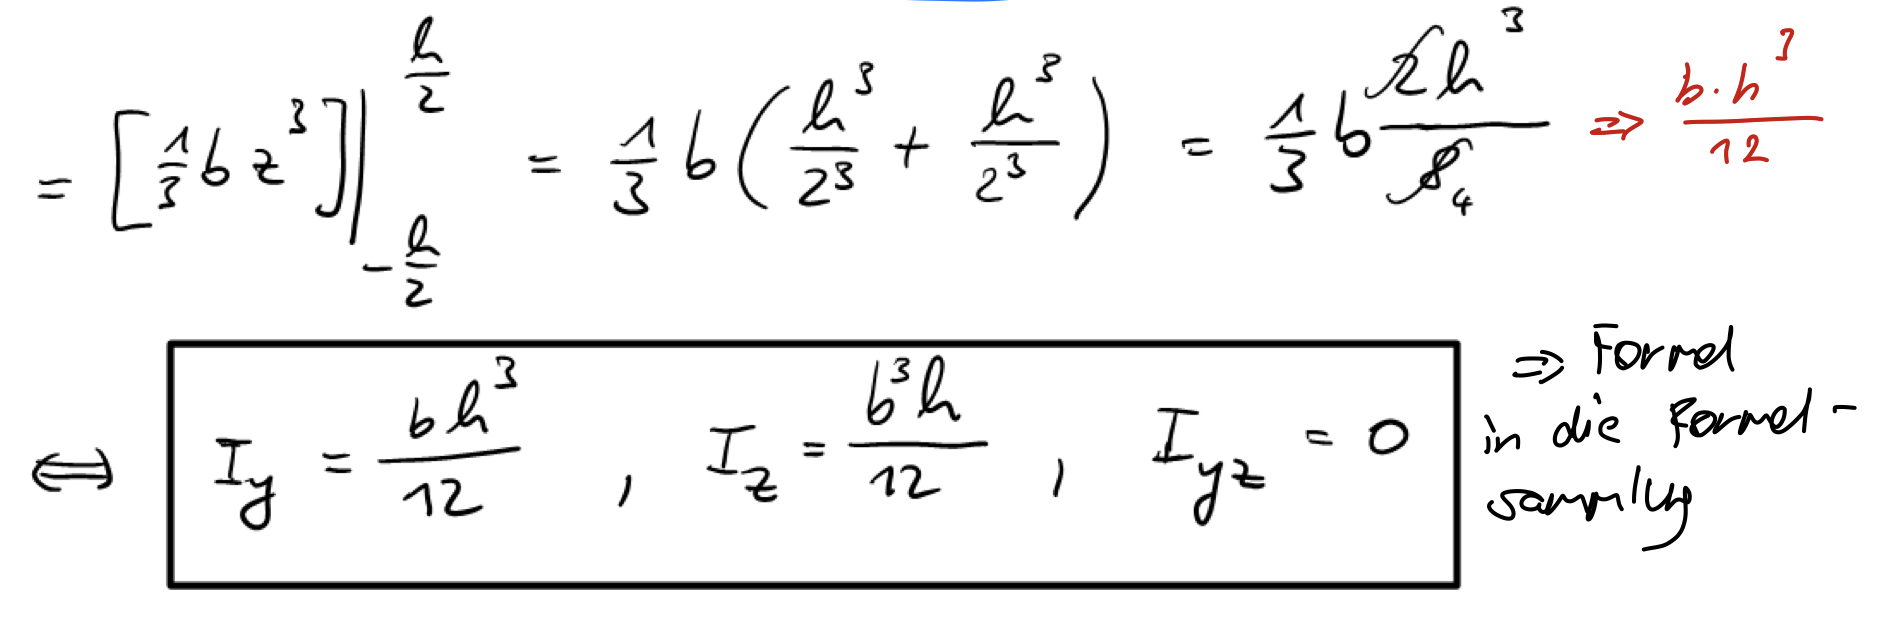 = [1/3 b z³]|_{-h/2}^{h/2} = 1/3 b (h³/2³ + h³/2³) = 1/3 b 2h³/8 4 ⇒ b·h³/12
⇔ I_y = bh³/12 , I_z = b³h/12 , I_yz = 0
⇒ Formel
in die Formel-
sammlung